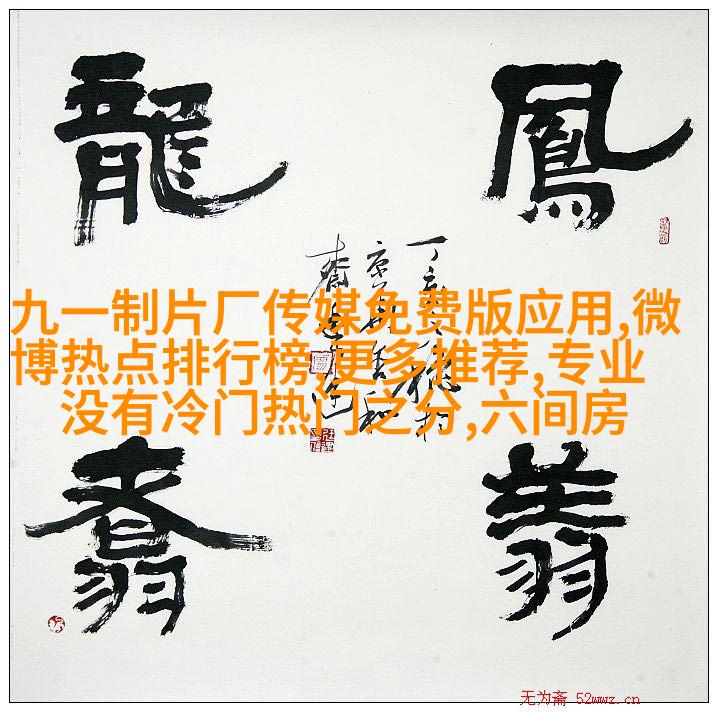 鳳翔
龍翥
九一制片厂传媒免费版应用,微
博热点排行榜,更多推荐,专业
没有冷门热门之分,六间房
无为斋 52wwz.cn